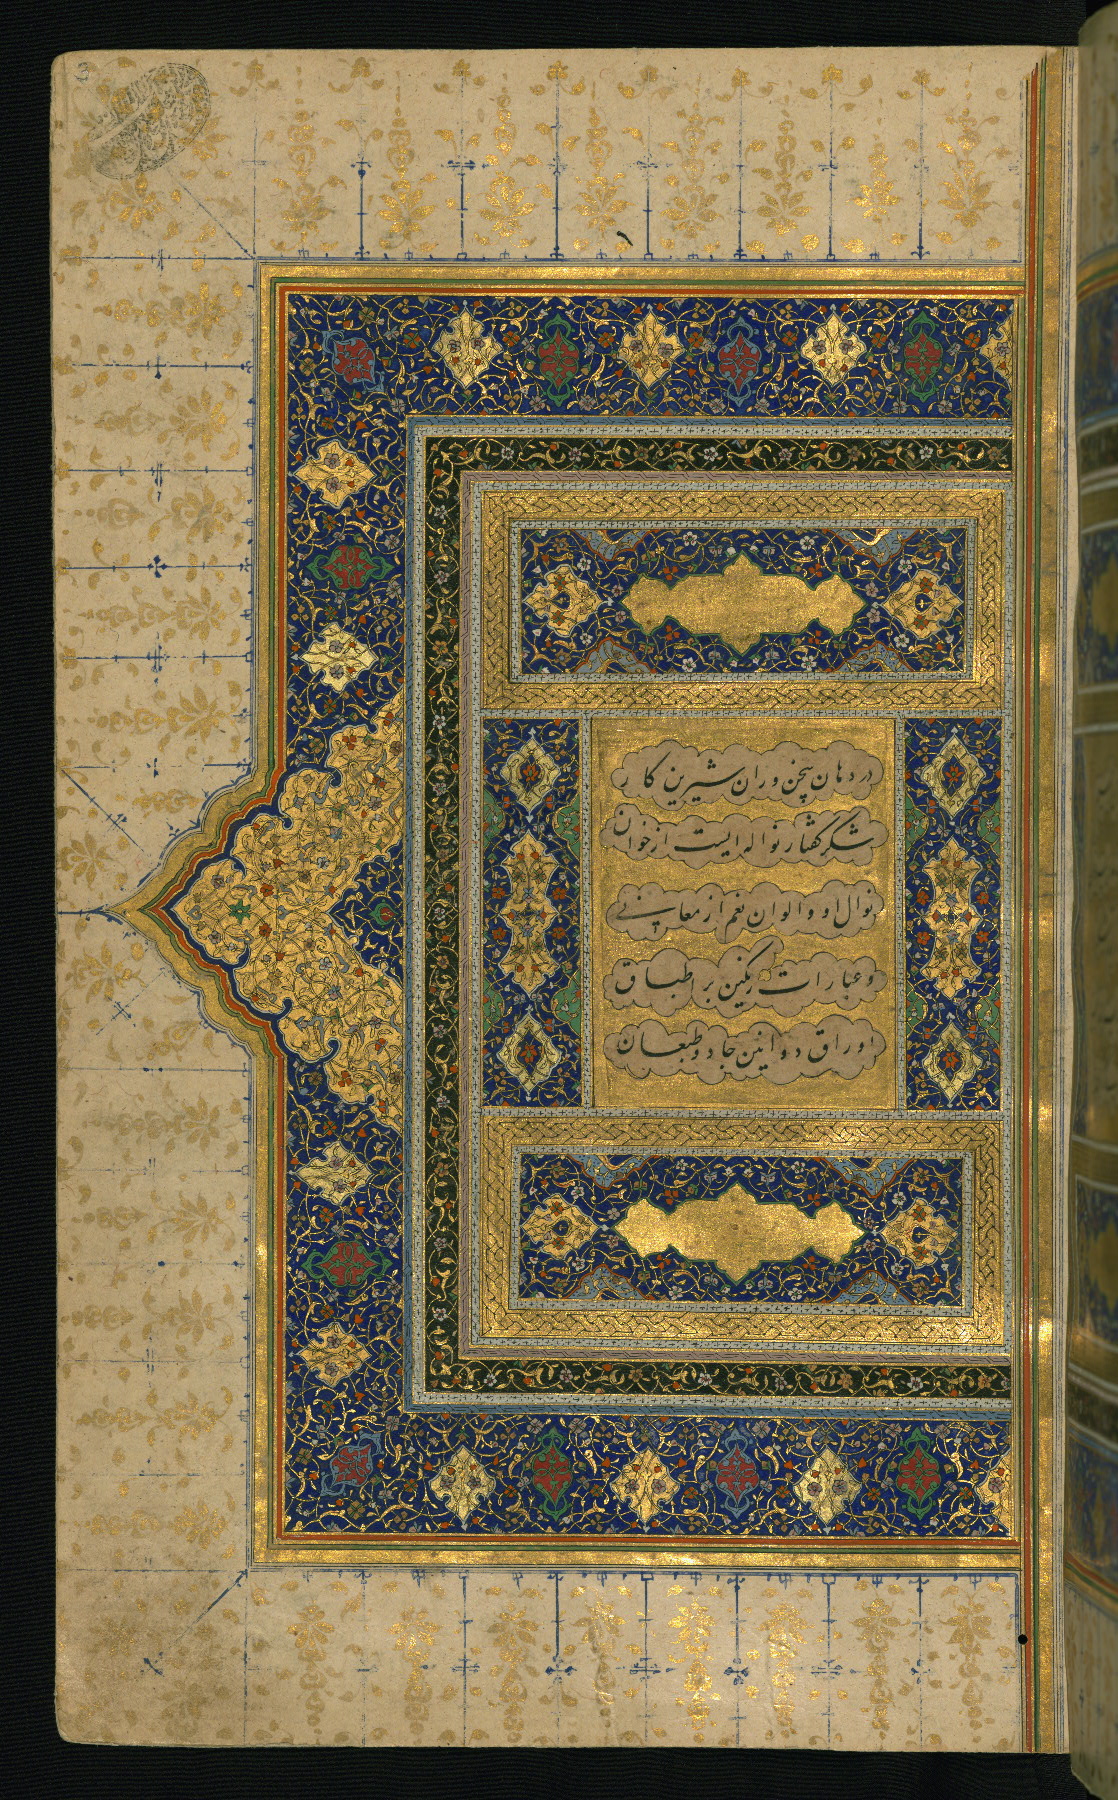 در دهان سخن وران شیرین کار
شکر گفتار نواله ایست از خوان
نوال او و الوان نعم از معانی
و عبارات رنگین بر اطباق
اوراق دواوین جادو طبعان